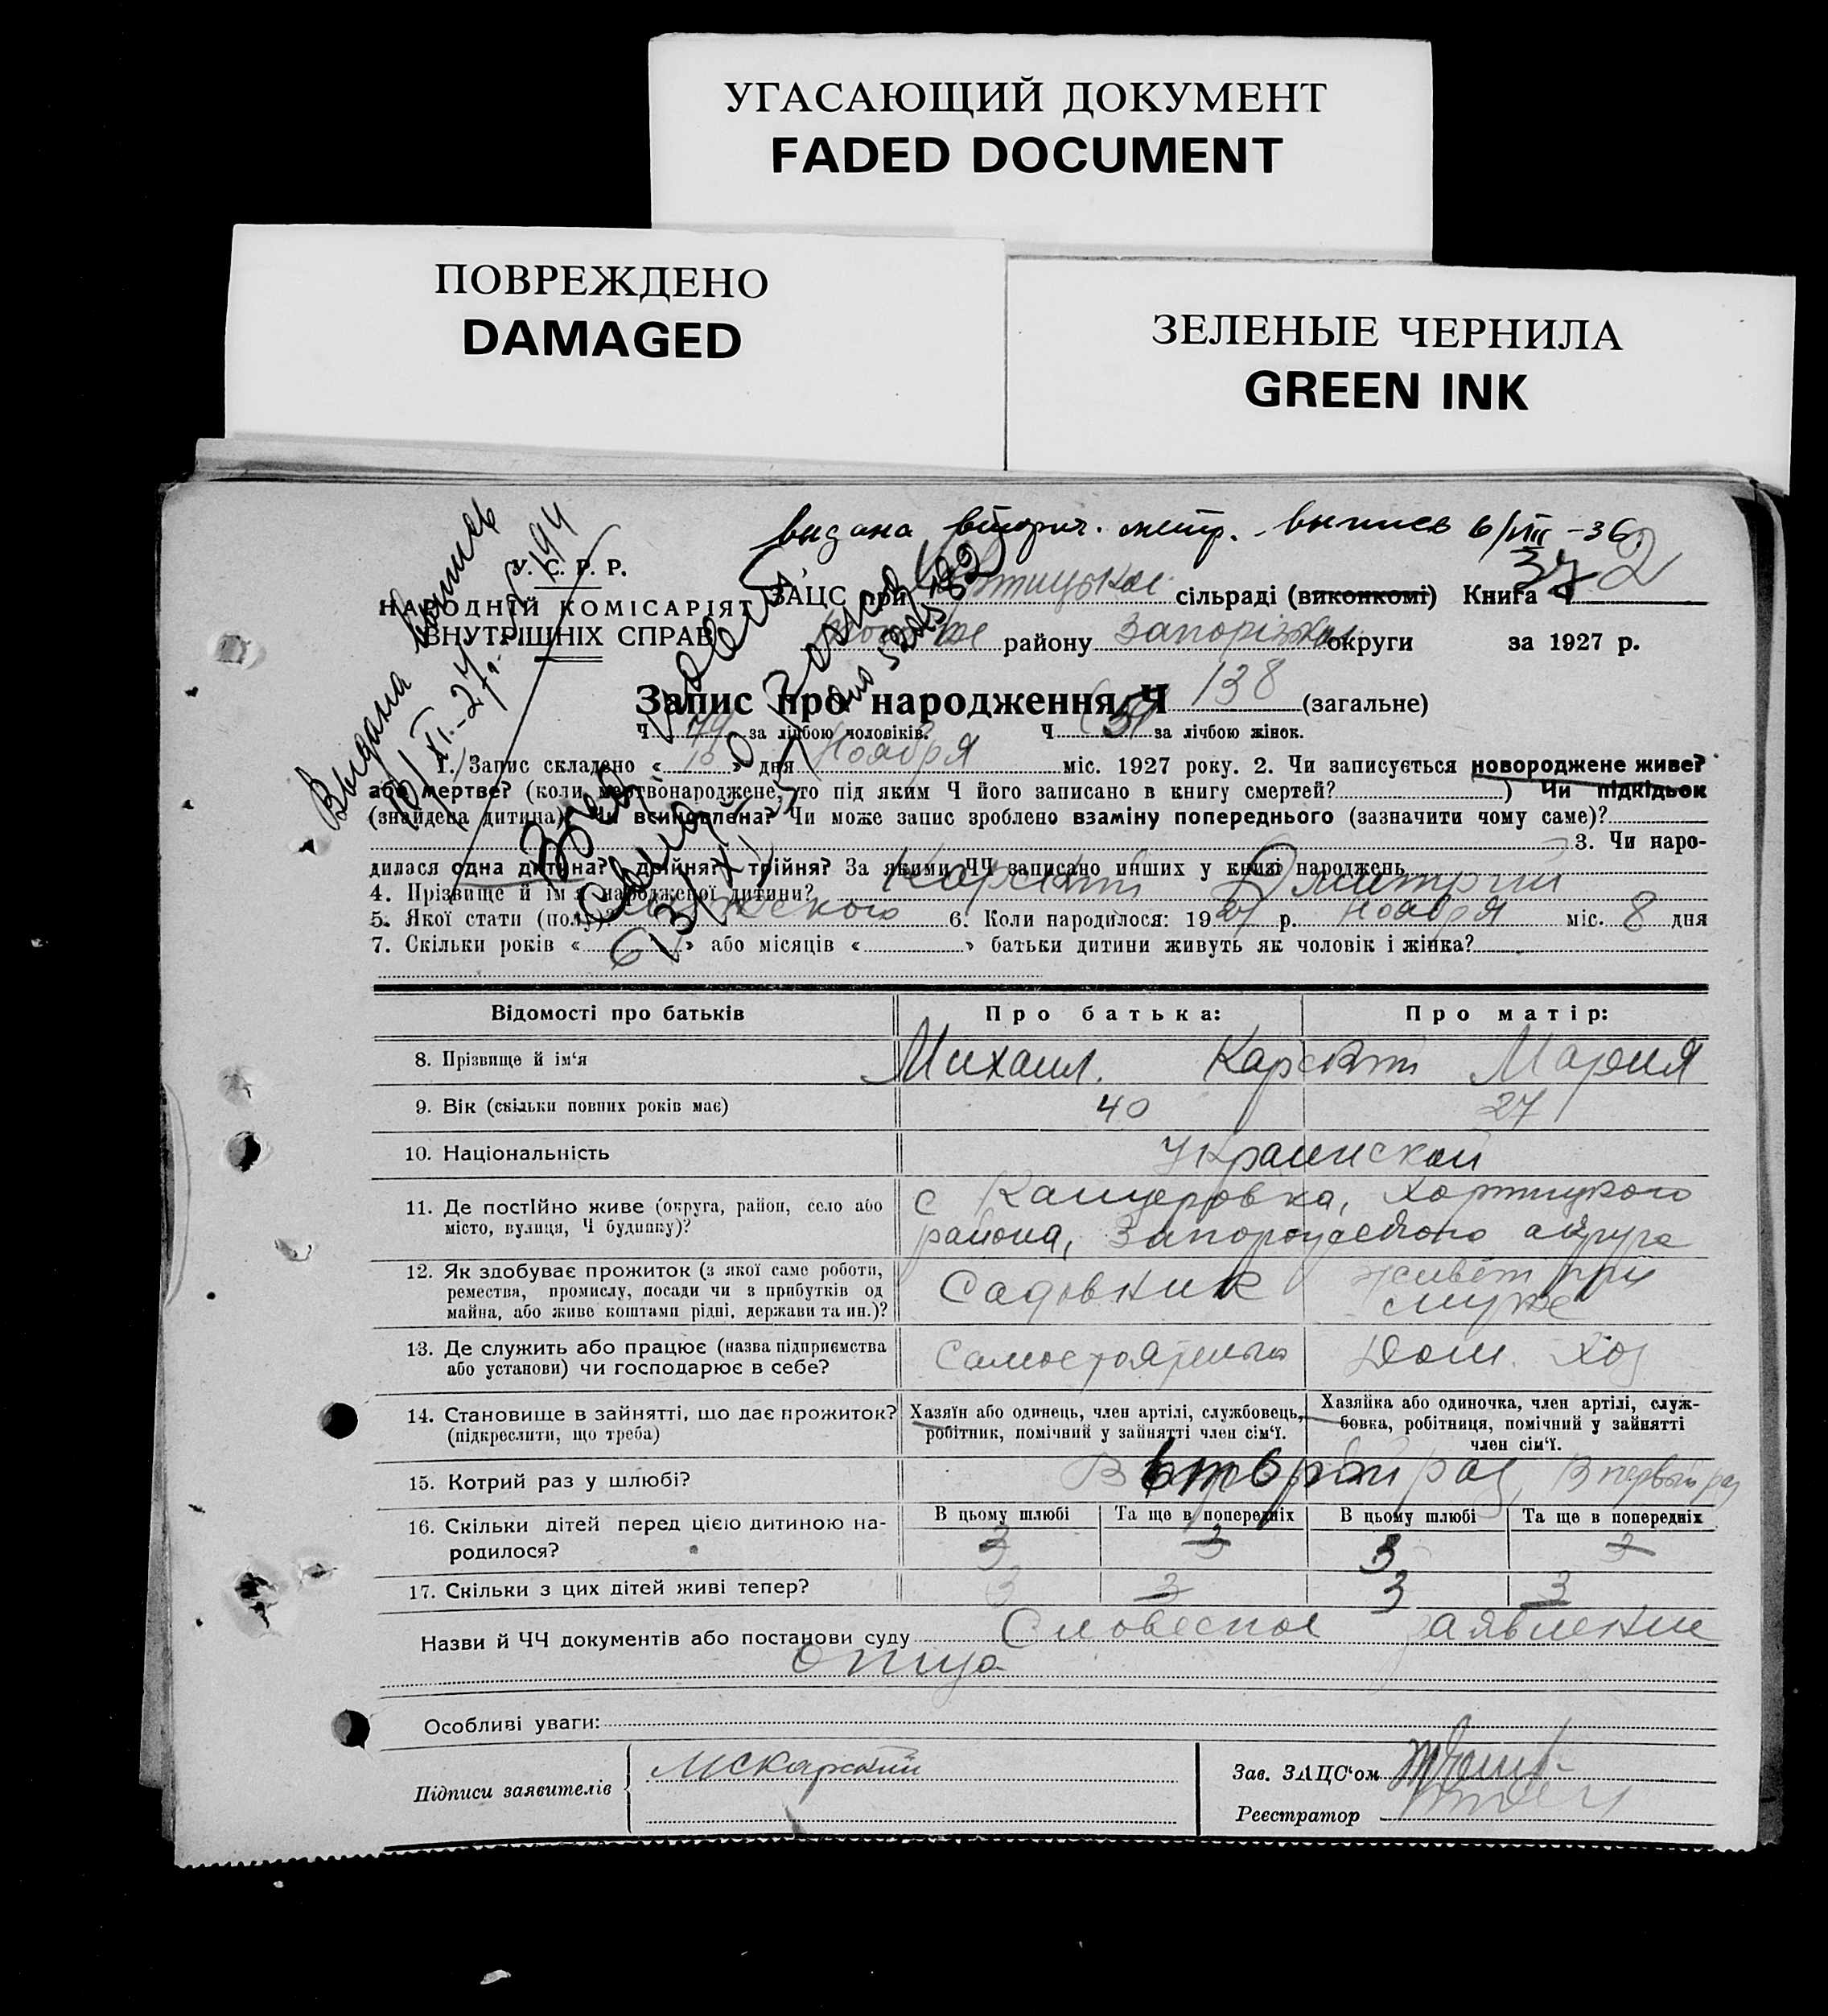 УГАСАЮЩИЙ ДОКУМЕНТ
FADED DOCUMENT
ПОВРЕЖДЕНО
DAMAGED
ЗЕЛЕНЫЕ ЧЕРНИЛА
GREEN INK
Выдана выпись
видана вторич. метр. выпись 6/VIII-36
У. С. Р. Р.
НАРОДНІЙ КОМІСАРІЯТ
ВНУТРІШНІХ СПРАВ
ЗАЦС при сільраді (виконкомі) Книга Ч 2
району Запорізької округи за 1927 р.
Запис про народження, Ч 138 (загальне)
Ч 79 за лічбою чоловіків. Ч 59 за лічбою жінок.
1. Запис складено « 10 » дня Ноября міс. 1927 року. 2. Чи записується новороджене живе?
або мертве? (коли мертвонароджене, то під яким Ч його записано в книгу смертей? ) Чи підкідьок
(знайдена дитина)? Чи всиновлена? Чи може запис зроблено взаміну попереднього (зазначити чому саме)?
3. Чи наро-
дилася одна дитина? двійня? трійня? За якими ЧЧ записано инших у книзі народжень
4. Прізвище й ім'я народженої дитини? Карский Дмитрий
5. Якої стати (полу)? мужеского 6. Коли народилося: 1927 р. Ноября міс. 8 дня
7. Скільки років « 6 » або місяців « » батьки дитини живуть як чоловік і жінка?
Відомості про батьків Про батька: Про матір:
8. Прізвище й ім'я Михаил. Карский Мария
9. Вік (скільки повних років має) 40 27
10. Національність Украинской
11. Де постійно живе (округа, район, село або
місто, вулиця, Ч будинку)?
с Канцеровка, Хортицкого
района, Запорожского округа
12. Як здобуває прожиток (з якої саме роботи,
ремества, промислу, посади чи з прибутків од
майна, або живе коштами рідні, держави та ин.)?
Садовник живёт при
муже
13. Де служить або працює (назва підприємства
або установи) чи господарює в себе?
Самостоятельно Дом. Хоз
14. Становище в зайнятті, що дає прожиток?
(підкреслити, що треба)
Хазяїн або одинець, член артілі, службовець,
робітник, помічний у зайнятті член сім'ї.
Хазяйка або одиночка, член артілі, служ-
бовка, робітниця, помічний у зайнятті
член сім'ї.
15. Котрий раз у шлюбі? Второй раз, В первый раз
16. Скільки дітей перед цією дитиною на-
родилося?
В цьому шлюбі Та ще в попередніх В цьому шлюбі Та ще в попередніх
3 3 3 3
17. Скільки з цих дітей живі тепер? 3 3 3 3
Назви й ЧЧ документів або постанови суду Словесное заявление
отца
Особливі уваги:
Підписи заявителів МКарский
Зав. ЗАЦС'ом
Реєстратор